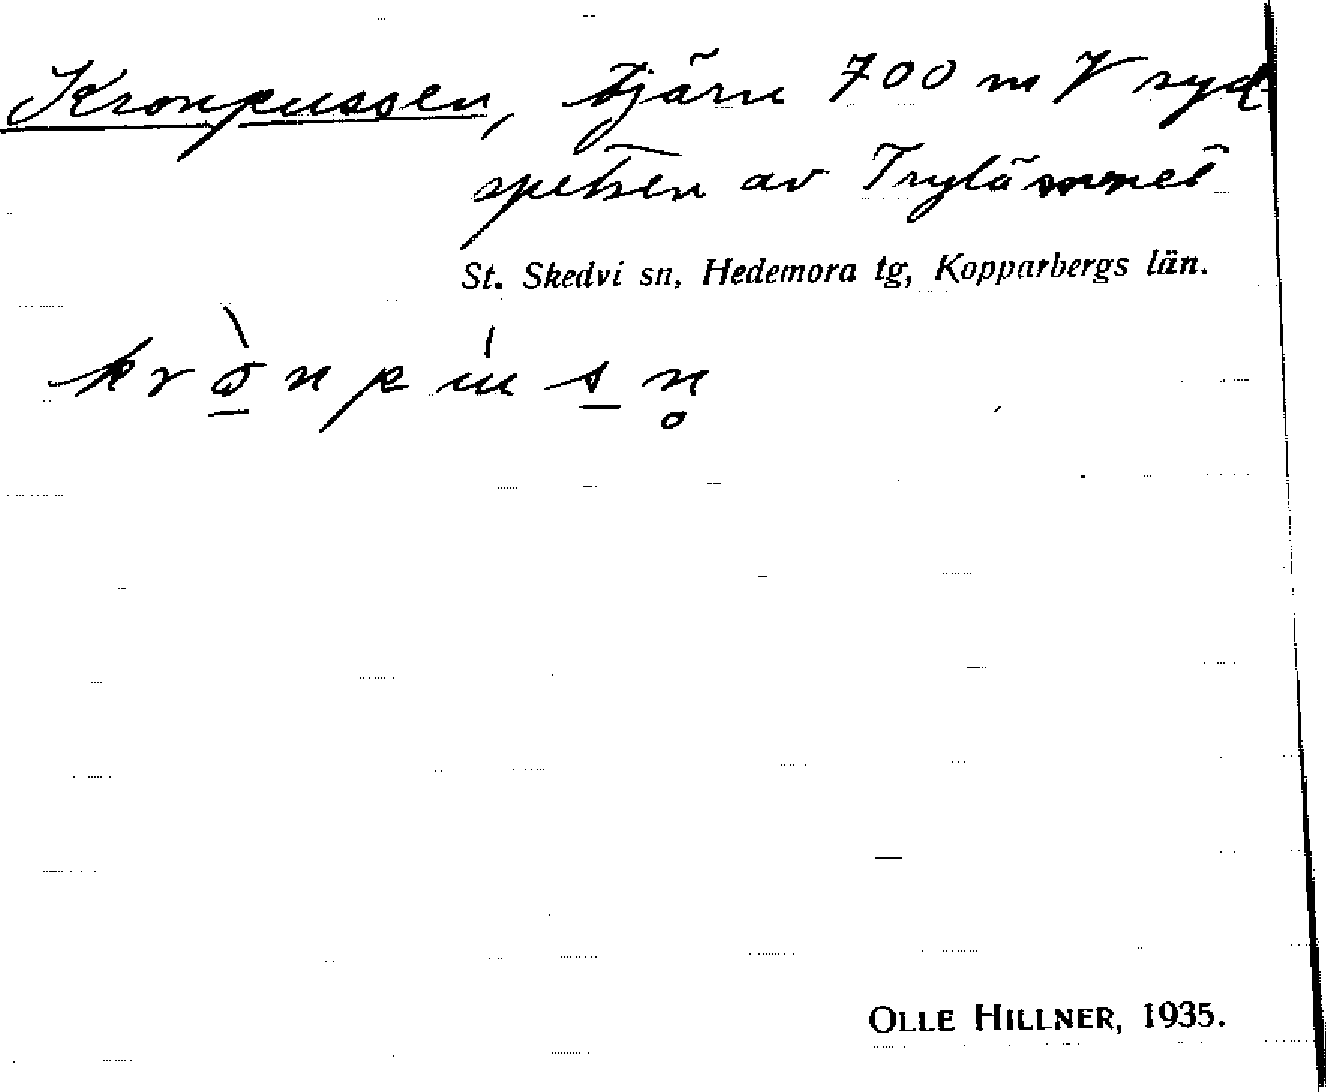 Kronpussen, tjärn 700 m V syd-
spetsen av Trylämnet
St. Skedvi sn, Hedemora tg, Kopparbergs län.
OLLE HILLNER, 1935.